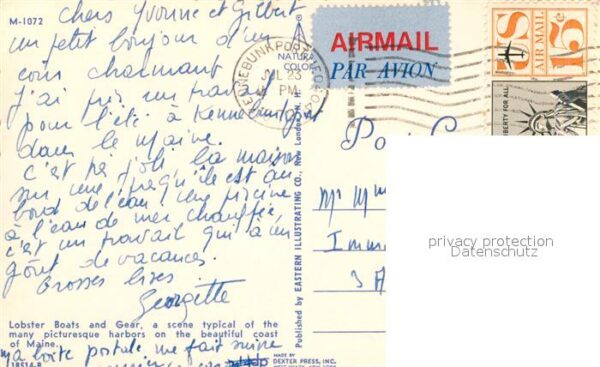 M-1072
Chers Yvonne et Gilbert
un petit bonjour d'un
coin charmant
j'ai pris un travail
pour l'été à Kennebunkport
dans le Maine.
c'est très joli la maison
sur une presqu'ile est au
bord de l'eau une piscine
à l'eau de mer chauffée
c'est un travail qui a un
goût de vacances.
Grosses bises
Georgette
Lobster Boats and Gear, a scene typical of the
many picturesque harbors on the beautiful coast
of Maine.
ma boite postale me fait suivre
18514-B
NATURAL
COLOR
KENNEBUNKPORT
JUL 23
PM
Published by EASTERN ILLUSTRATING CO., New London, N. H.
MADE BY
DEXTER PRESS, INC.
WEST NYACK, NEW YORK
AIRMAIL
PAR AVION
US
AIR MAIL
15¢
LIBERTY FOR ALL
Mr Mme
Imm
3 A
privacy protection
Datenschutz